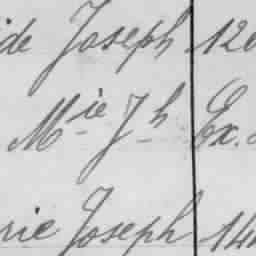 ide Joseph 120
Mie Jh Ex.
rie Joseph 141